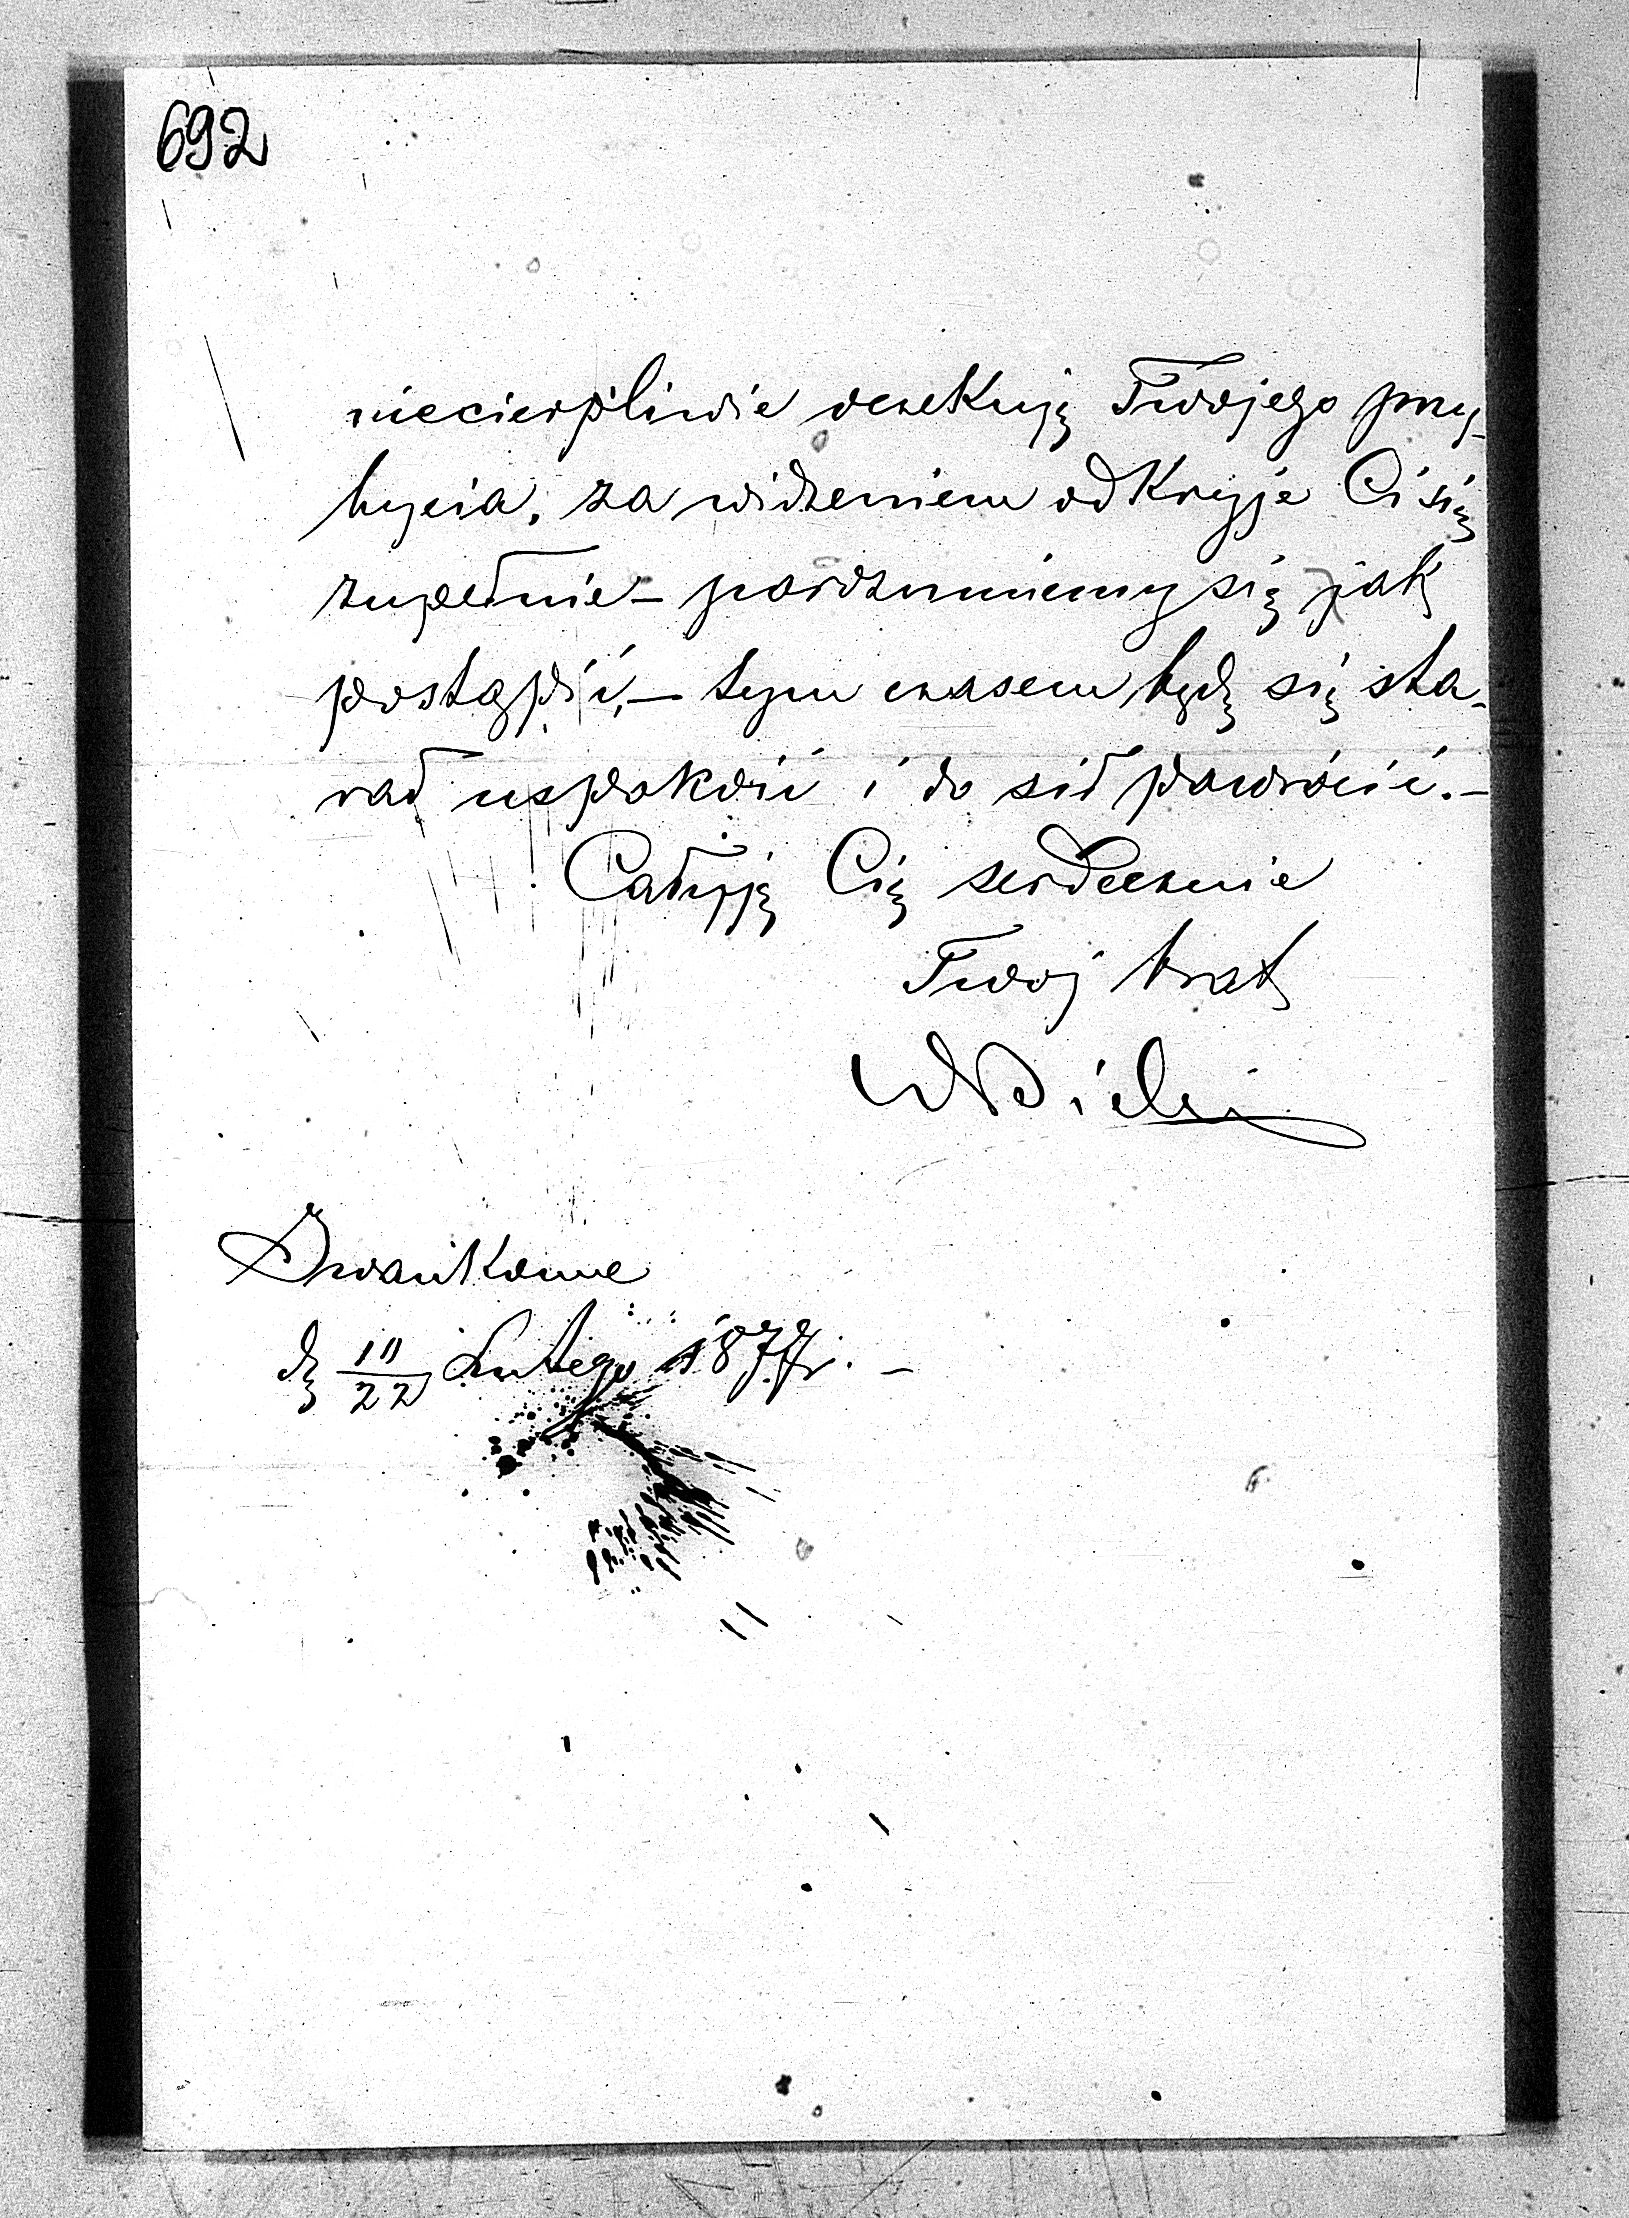 692
niecierpliwie oczekuję Twojego przy-
bycia, za widzeniem odkryje Ci się
zupełnie – porozumiemy się jak
postąpić, – tym czasem będę się sta-
rał uspokoić i do sił powrócić. –
Całuję Cię serdecznie
Twoj brat
Iwankowce
d 10/22 Lutego 1877 r. –